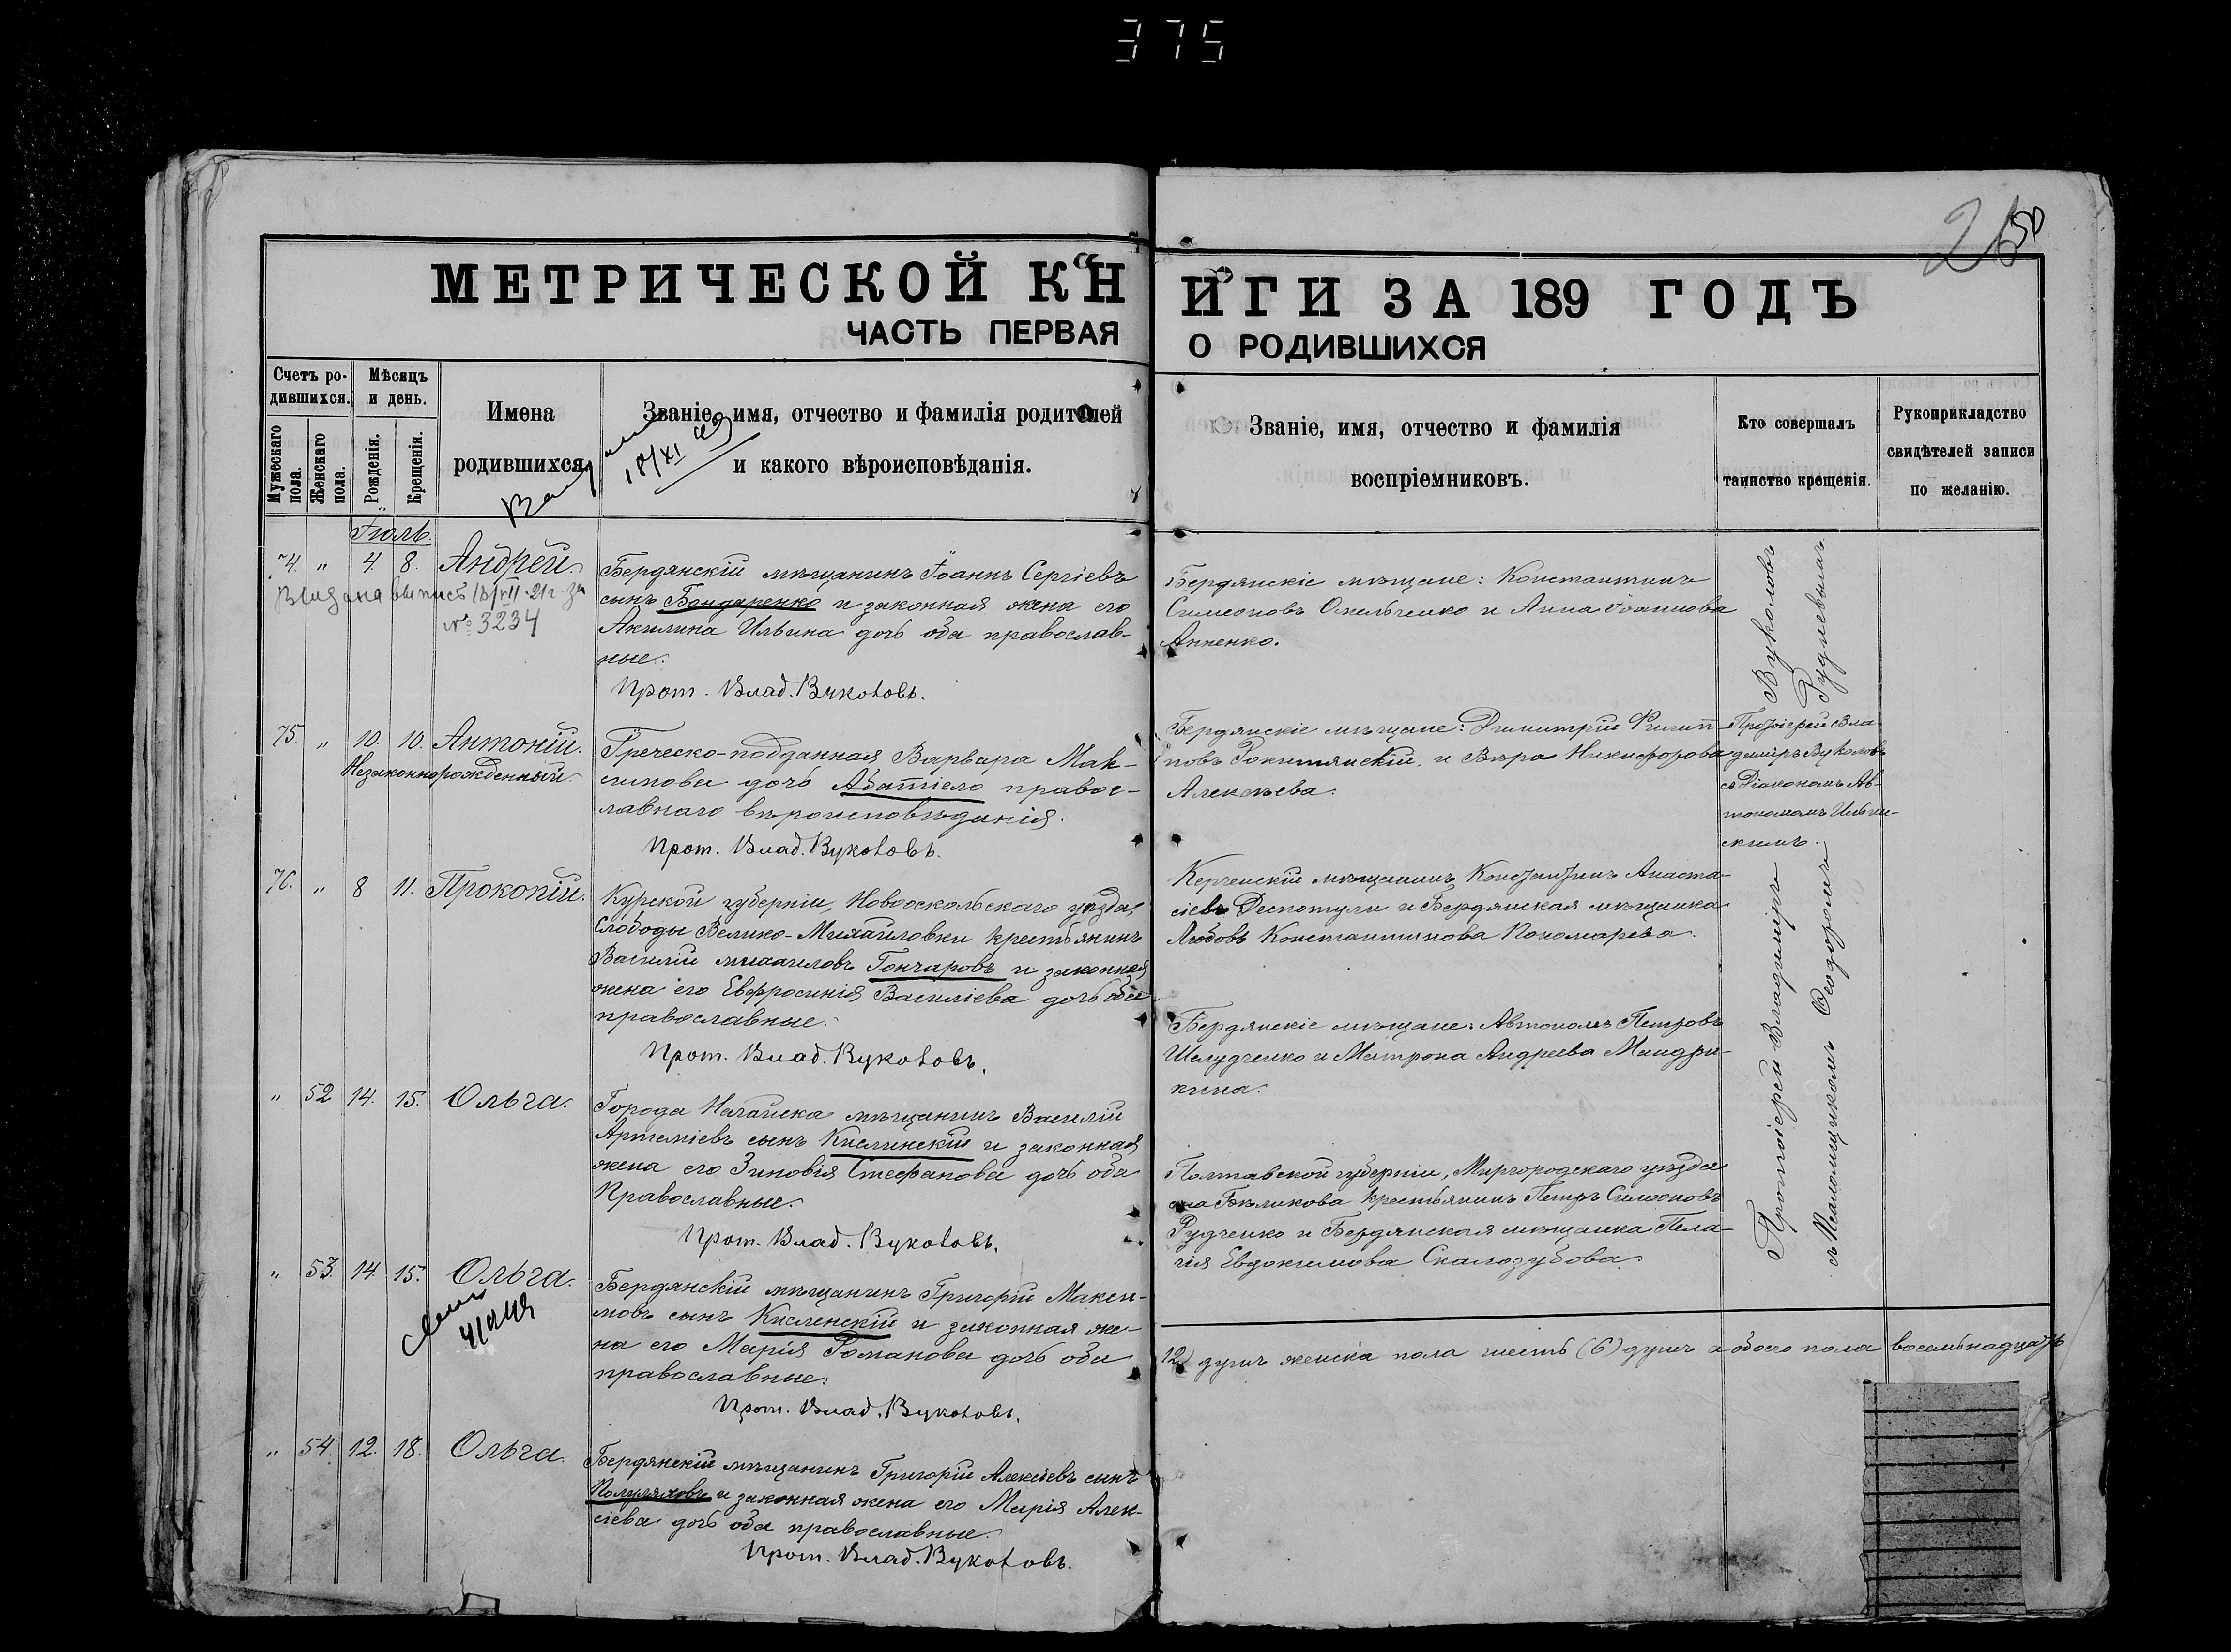 375
26 50
МЕТРИЧЕСКОЙ КНИГИ ЗА 189 ГОДЪ
ЧАСТЬ ПЕРВАЯ О РОДИВШИХСЯ
Счетъ ро-
дившихся.
Мѣсяцъ
и день.
Мужескаго пола.
Женскаго пола.
Рожденія.
Крещенія.
Имена
родившихся
Званіе, имя, отчество и фамилія родителей
и какого вѣроисповѣданія.
Званіе, имя, отчество и фамилія
воспріемниковъ.
Кто совершалъ
таинство крещенія.
Рукоприкладство
свидѣтелей записи
по желанію.
18/XI
Іюль.
74. " 4. 8. Андрей.
Выдана выпись 18/VII 21 г. за
№ 3234
Бердянскій мѣщанинъ Іоаннъ Сергіевъ
сынъ Бондаренко и законная жена его
Акилина Ильина дочь оба православ-
ные.
Прот. Влад. Вуколовъ.
Бердянскіе мѣщане: Константинъ
Симеоновъ Омельченко и Анна Іоаннова
Анненко.
75. " 10. 10. Антоній.
Незаконнорожденный.
Греческо-подданная Варвара Мак-
симова дочь Абатіело правос-
лавнаго вѣроисповѣданія.
Прот. Влад. Вуколовъ.
Бердянскіе мѣщане: Димитрій Филип-
повъ Рокитянскій, и Вѣра Никифорова
Алексѣева.
Протоіерей Вла-
диміръ Вуколовъ
съ Діакономъ Ав-
тономомъ Ильин-
скимъ.
76. " 8 11. Прокопій.
Курской губерніи, Новооскольскаго уѣзда,
Слободы Велико-Михайловки крестьянинъ
Василій Михаиловъ Гончаровъ и законная
жена его Евфросинія Василіева дочь оба
православные.
Прот. Влад. Вуколовъ.
Керченскій мѣщанинъ Константинъ Анаста-
сіевъ Деспотули и Бердянская мѣщанка
Любовь Константинова Пономарева.
" 52 14. 15. Ольга.
Города Ногайска мѣщанинъ Василій
Артеміевъ сынъ Кислинскій и законная
жена его Зиновія Стефанова дочь оба
Православные.
Прот. Влад. Вуколовъ.
Бердянскіе мѣщане: Автономъ Петровъ
Шелудченко и Матрона Андреева Мандри-
кина.
" 53. 14. 15. Ольга.
Бердянскій мѣщанинъ Григорій Макси-
мовъ сынъ Кисленскій и законная же-
на его Марія Романова дочь оба
православные.
Прот. Влад. Вуколовъ.
Полтавской губерніи, Миргородскаго уѣзда
крестьянинъ Петръ Симеоновъ
Рудченко и Бердянская мѣщанка Пела-
гія Евдокимова Скалозубова.
" 54. 12. 18. Ольга.
Бердянскій мѣщанинъ Григорій Алексіевъ сынъ
Полуляховъ и законная жена его Марія Алек-
сіева дочь оба православные.
Прот. Влад. Вуколовъ.
Протоіерей Владиміръ Вуколовъ
съ Псаломщикомъ Ѳеодоромъ Рудневымъ
12) душъ женска пола шесть (6) душъ а обоего пола восемьнадцать